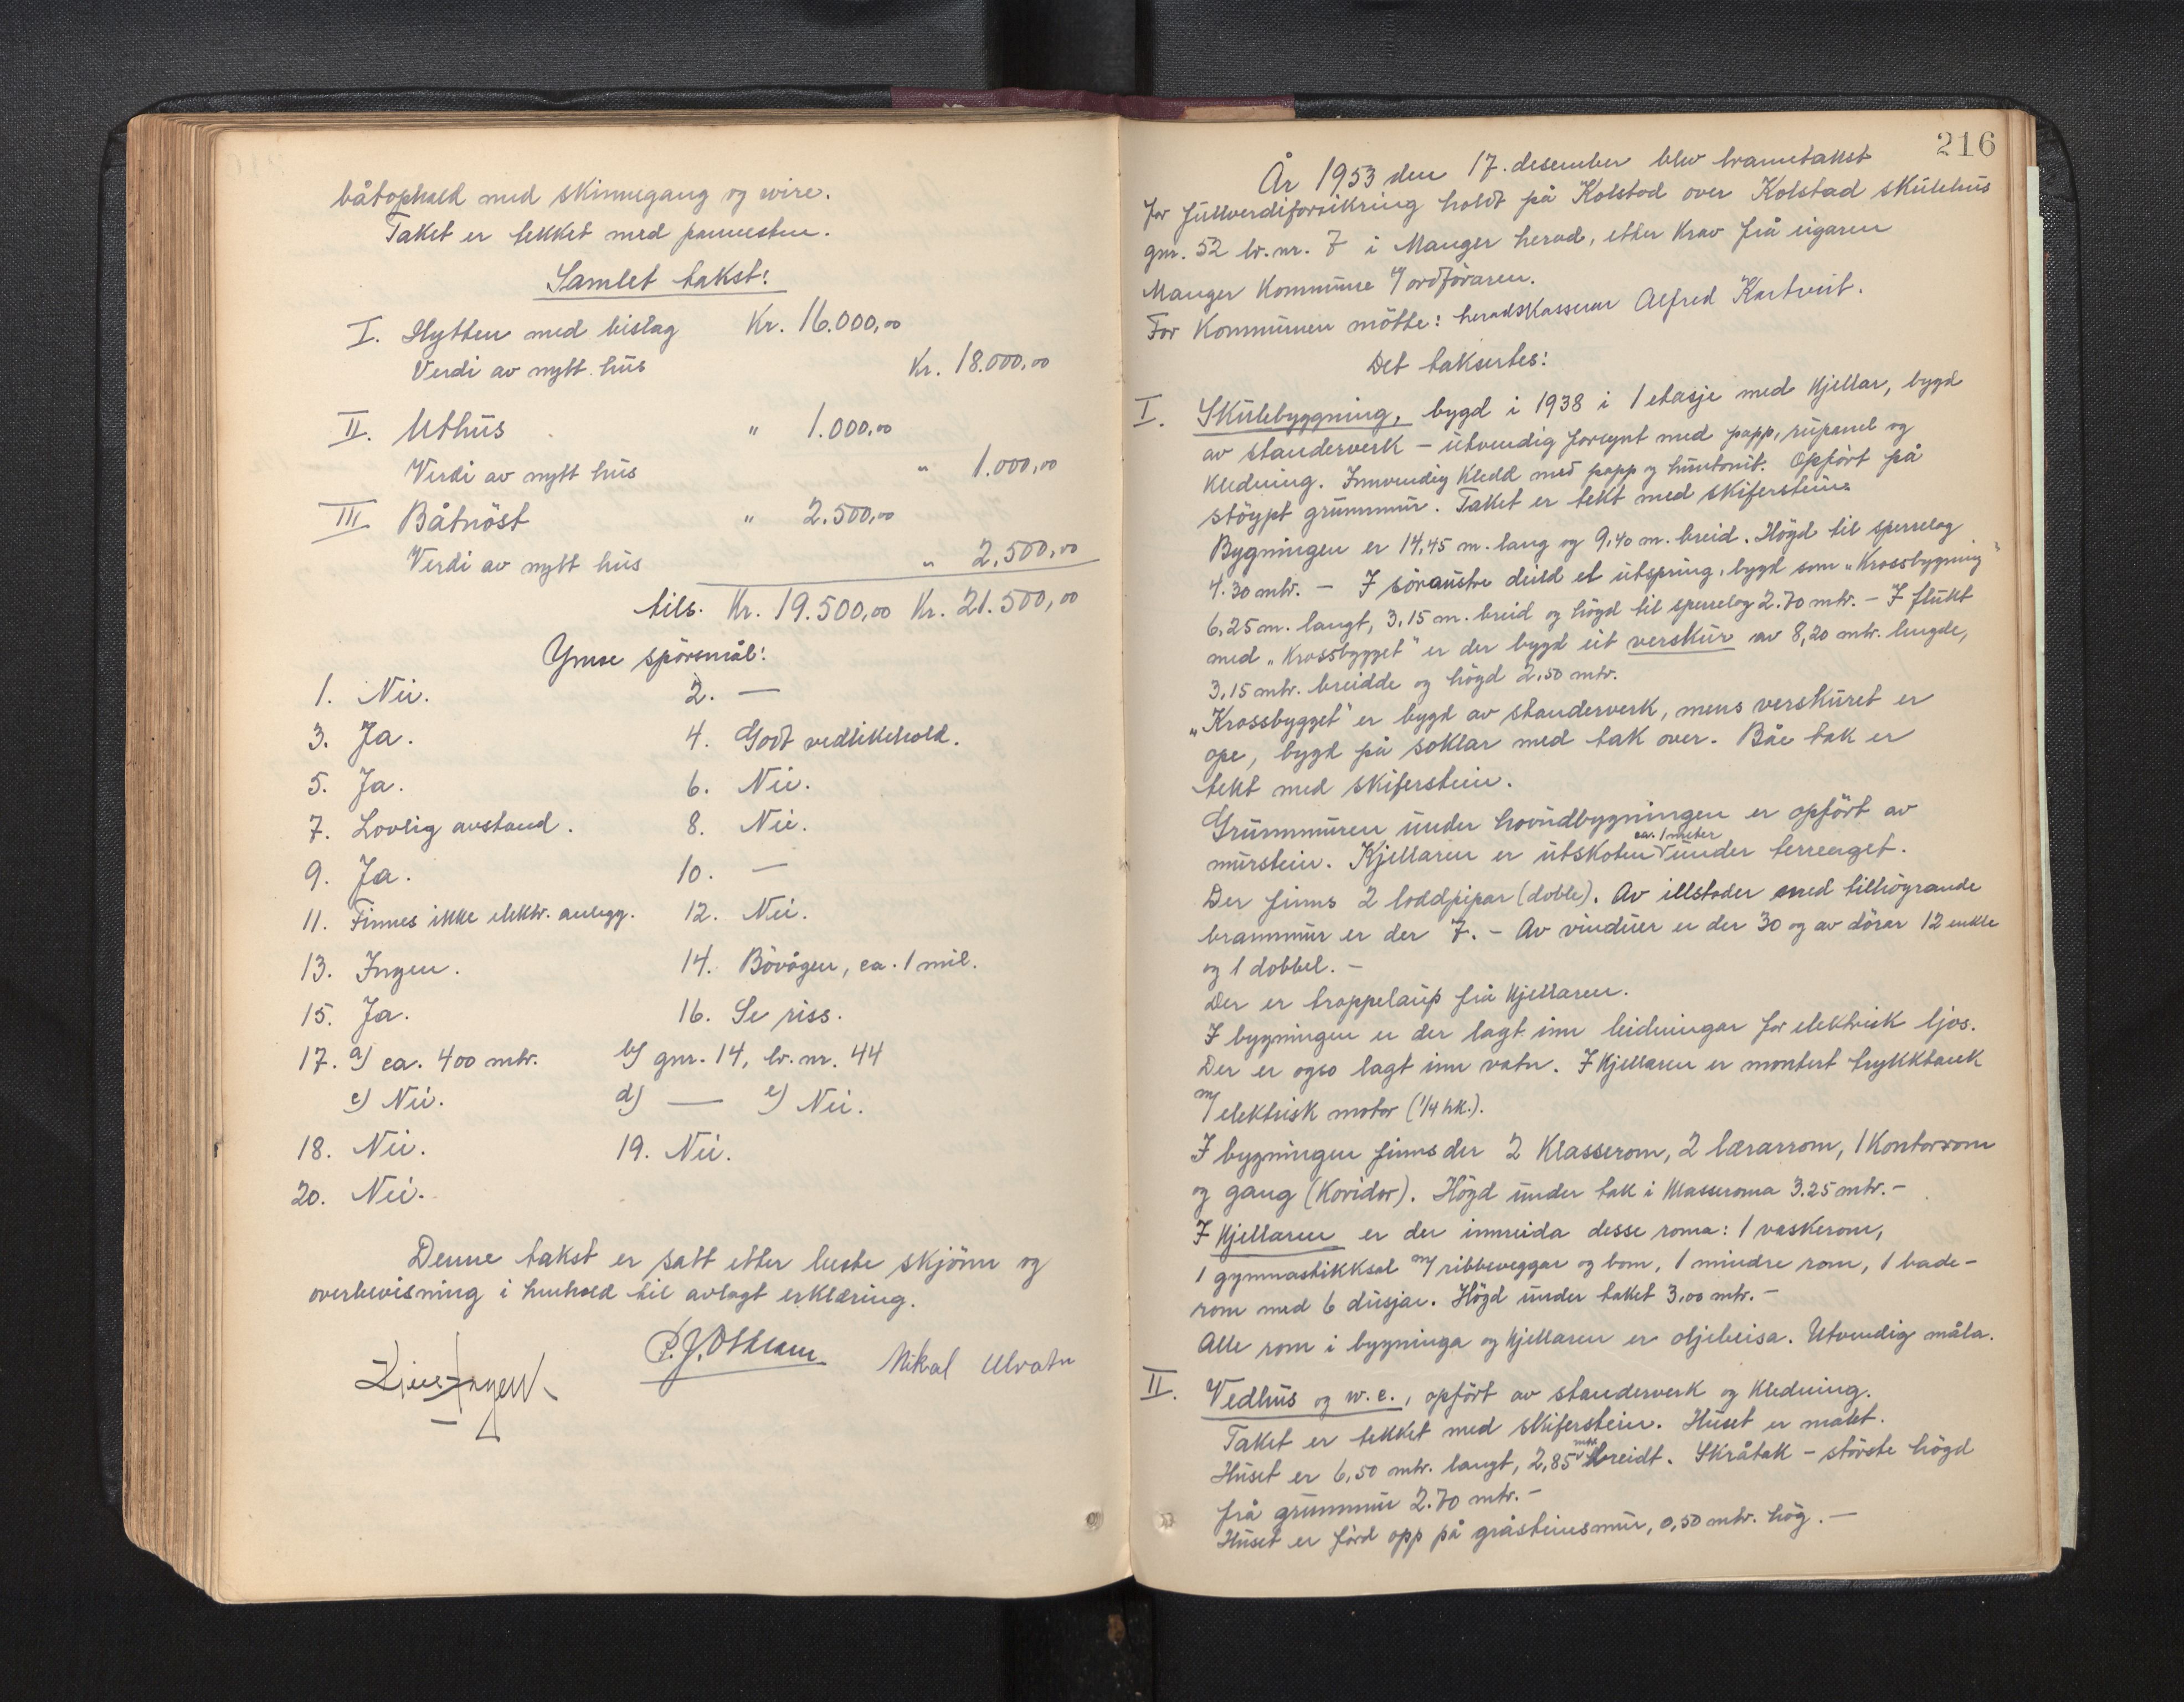 båtophold med skinnegang og wire.
Taket er tekket med pannesten.
Samlet takst:
I. Hytten med bislag Kr. 16.000,00
Verdi av nytt hus Kr. 18.000,00
II. Uthus " 1.000,00
Verdi av nytt hus " 1.000,00
III Båtnöst " 2.500,00
Verdi av nytt hus " 2.500,00
tils. Kr. 19.500,00 Kr. 21.500,00
Ymse spörsmål:
1. Nei. 2. —
3. Ja. 4. Godt vedlikehold.
5. Ja. 6. Nei.
7. Lovlig avstand. 8. Nei.
9. Ja. 10. —
11. Finnes ikke elektr. anlegg. 12. Nei.
13. Ingen. 14. Bövågen, ca. 1 mil.
15. Ja. 16. Se riss.
17. a) ca. 400 mtr. b) gnr. 14, br. nr. 44
c) Nei. d) — e) Nei.
18. Nei. 19. Nei.
20. Nei.
Denne takst er satt etter beste skjönn og
overbevisning i henhold til avlagt erklæring.
Nikal Ulvatn
216
År 1953 den 17. desember blev branntakst
for fullverdiforsikring holdt på Kolstad over Kolstad skulehus
gnr. 52 br. nr. 7 i Manger herad, etter krav frå eigaren
Manger Kommune v/ ordföraren.
For Kommunen mötte: heradskasserar Alfred Kartveit.
Det taksertes:
I. Skulebyggning, bygd i 1938 i 1 etasje med kjellar, bygd
av standerverk – utvendig forsynt med papp, rupanel og
kledning. Innvendig kledd med papp og huntonit. Opfört på
stöypt grunnmur. Taket er tekt med skiferstein.
Bygningen er 14,45 m. lang og 9,40 m. breid. Högd til sperrelag
4.30 mtr. – I söraustre deild et utspring, bygd som „Krossbygning"
6,25 m. langt, 3,15 m. breid og högd til sperrelag 2.70 mtr. – I flukt
med „Krossbygget" er der bygd eit verskur av 8,20 mtr. lengde,
3,15 mtr. breidde og högd 2,50 mtr.
„Krossbygget" er bygd av standerverk, mens verskuret er
ope, bygd på soklar med tak over. Båe tak er
tekt med skiferstein.
Grunnmuren under hovudbygningen er opfört av
murstein. Kjellaren er utskoten ca. 1 meter under terrenget.
Der finns 2 loddpipar (doble). Av illstader med tilhöyrande
brannmur er der 7. – Av vinduer er der 30 og av dörer 12 enkle
og 1 dobbel. –
Der er trappelaup frå kjellaren.
I bygningen er der lagt inn leidningar for elektrisk ljos.
Der er ogso lagt inn vatn. I kjellaren er montert trykktank
m/ elektrisk motor (1/4 hk.).
I bygningen finns der 2 klasserom, 2 lærarrom, 1 kontorrom
og gang (Koridor). Högd under tak i klasseroma 3.25 mtr. –
I kjellaren er der innreida desse roma: 1 vaskerom,
1 gymnastikksal m/ ribbeveggar og bom, 1 mindre rom, 1 bade-
rom med 6 dusjar. Högd under taket 3,00 mtr. –
Alle rom i bygninga og kjellaren er oljebeisa. Utvendig måla.
II. Vedhus og w.c., opfört av standerverk og kledning.
Taket er tekket med skiferstein. Huset er malet.
Huset er 6,50 mtr. langt, 2,85 mtr breidt. Skråtak – störste högd
frå grunnmur 2.70 mtr. –
Huset er förd opp på gråsteinsmur, 0,50 mtr. hög. —